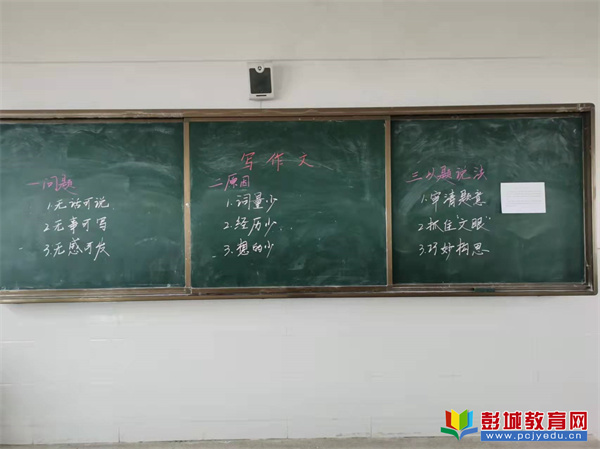 写作文
一问题
1.无话可说
2.无事可写
3.无感可发
二原因
1.词量少
2.经历少
3.想的少
三小题说法
1.审清题意
2.抓住"文眼"
3.巧妙构思
彭城教育网
www.pcjyedu.cn